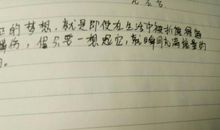 的梦想,就是即使在生活中被折磨得遍
体鳞伤,但只要一想起它,就瞬间充满能量的